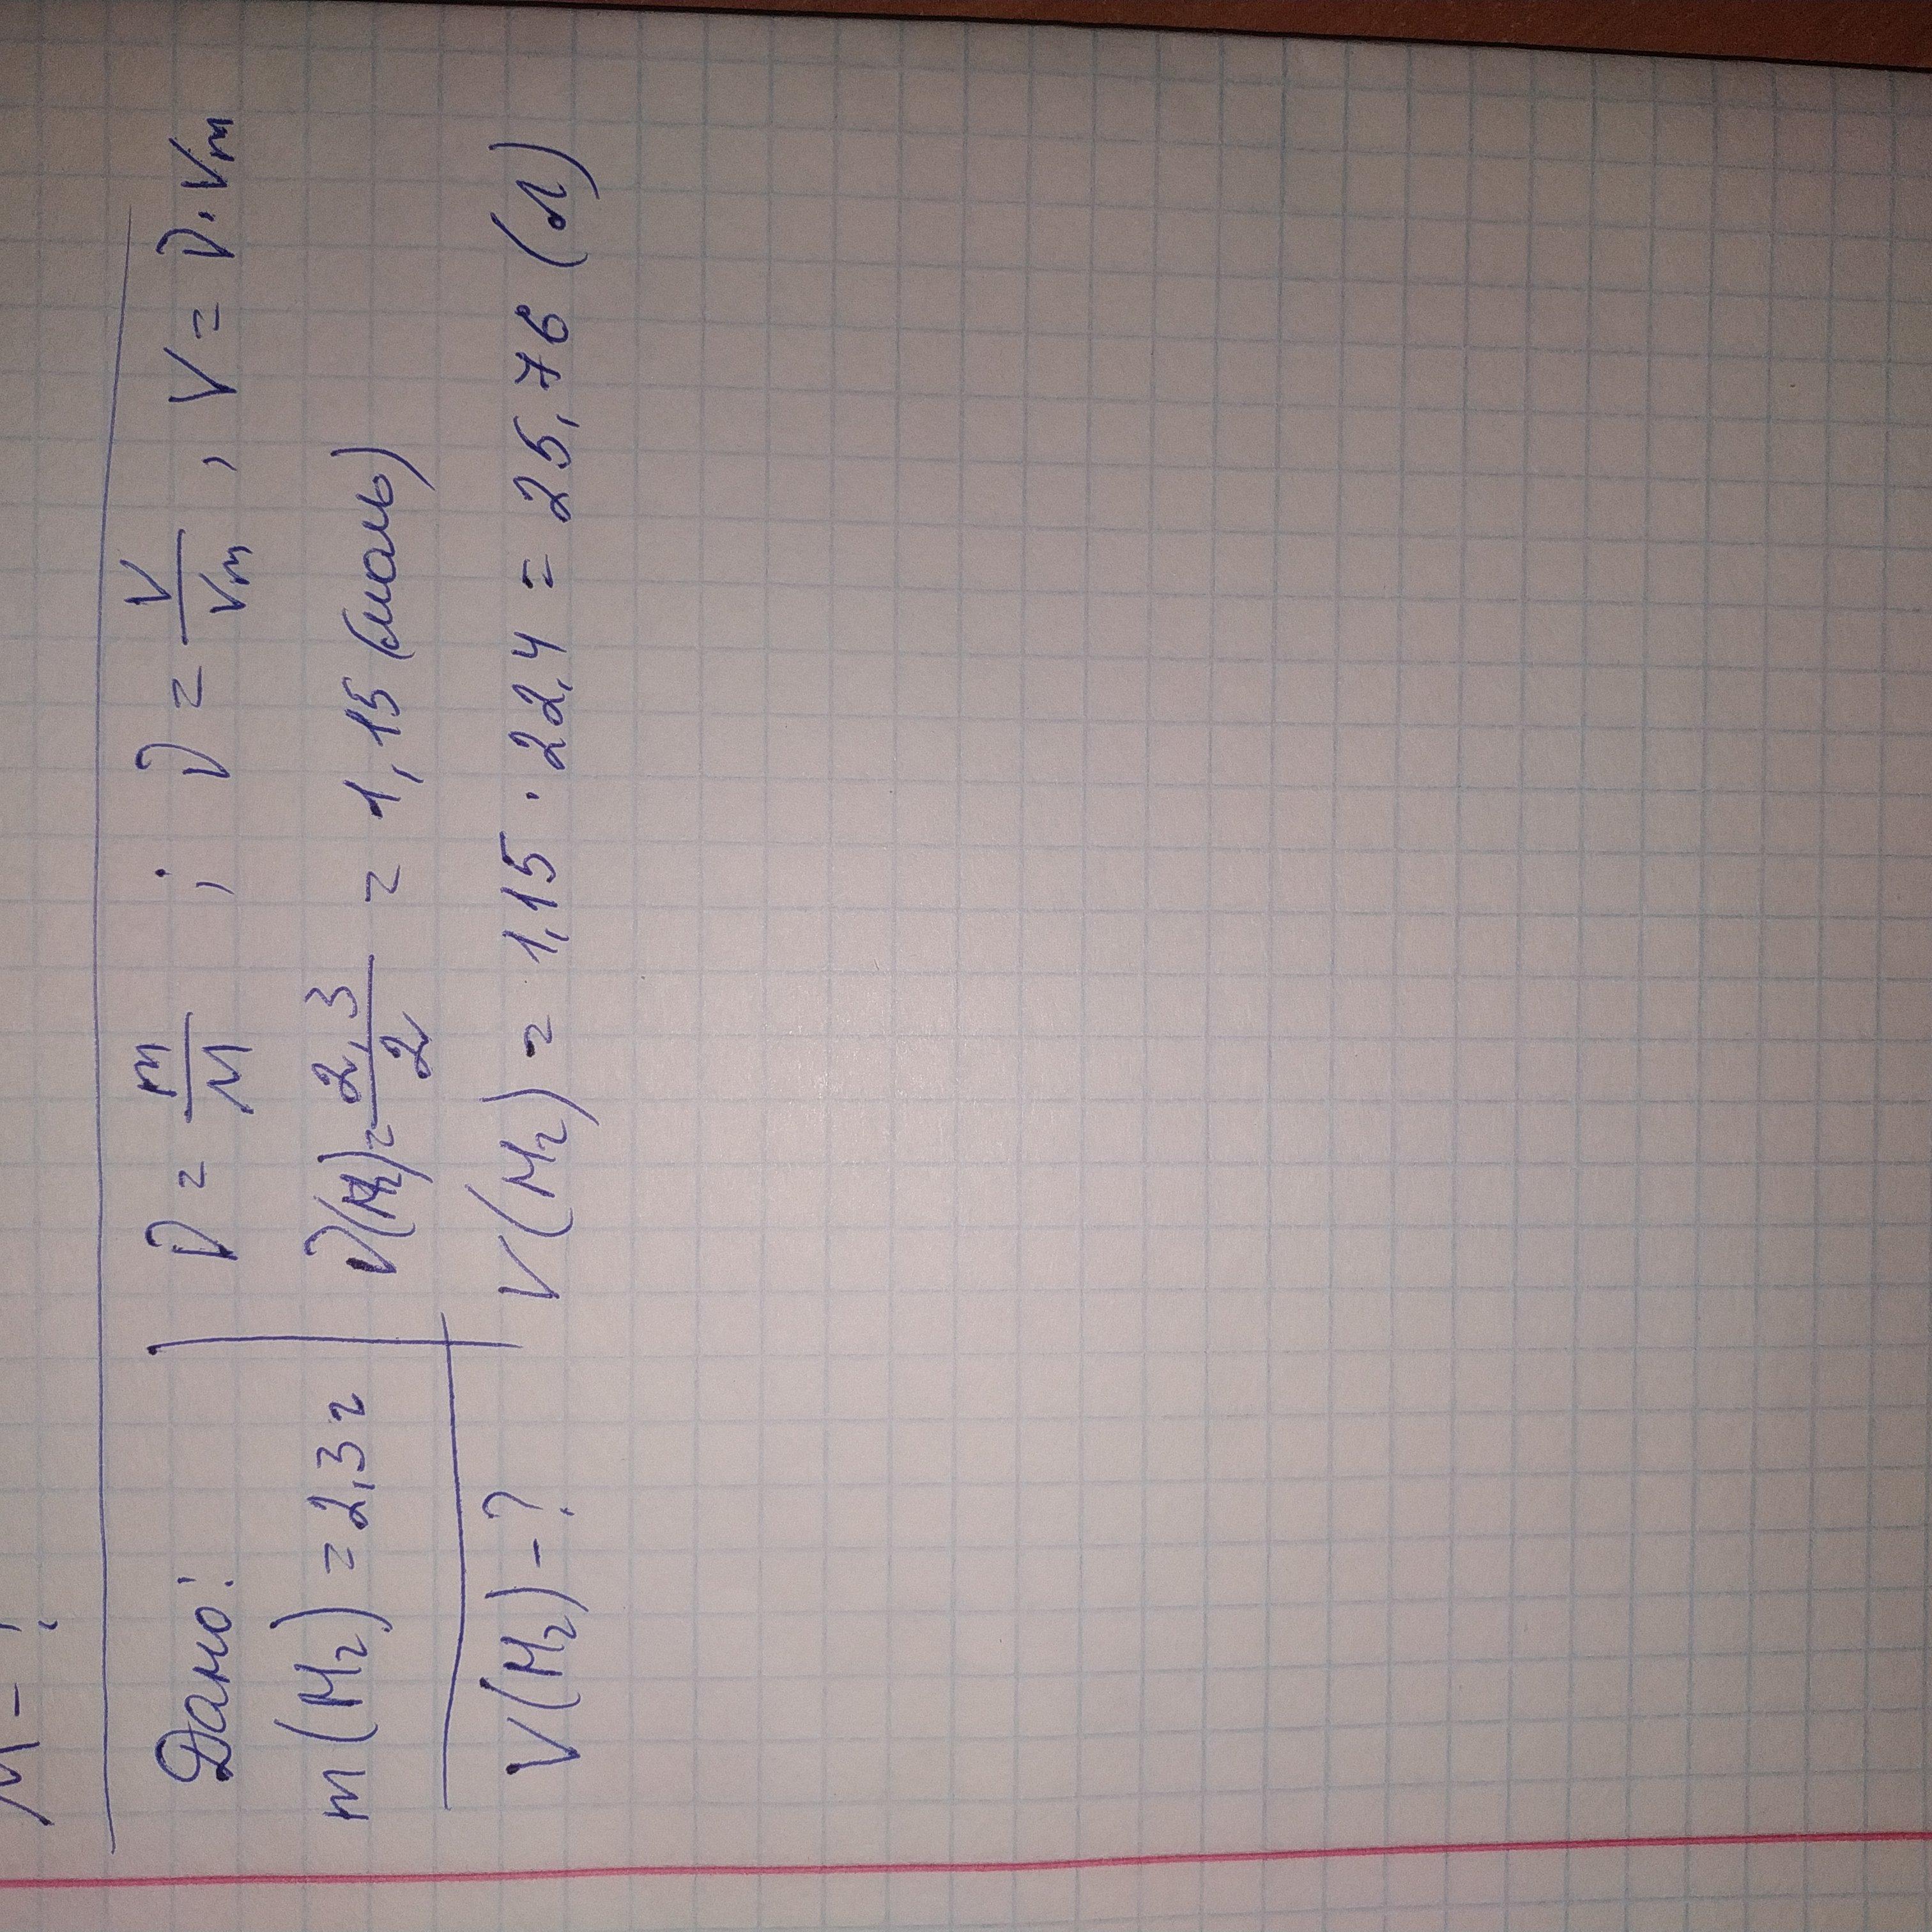 Дано:
m(H₂) = 2,3 г
V(H₂) - ?
ν = m/M ; ν = V/Vm , V = ν · Vm
ν(H₂) = 2,3/2 = 1,15 (моль)
V(H₂) = 1,15 · 22,4 = 25,76 (л)